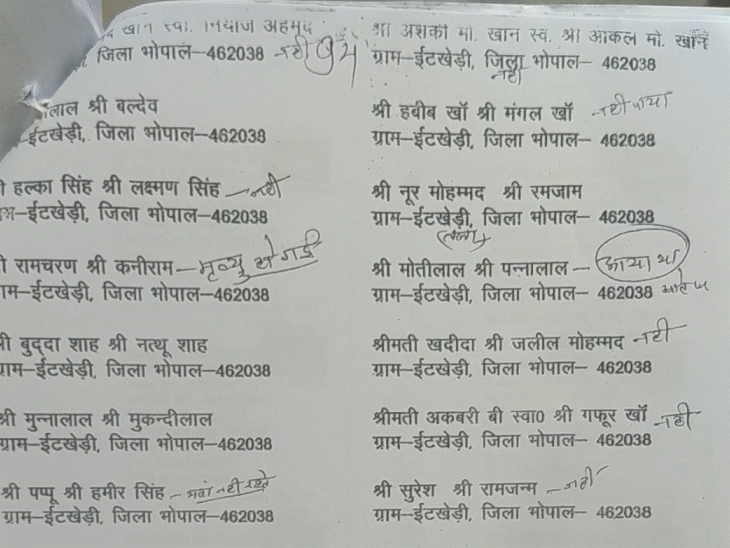 खान स्वा. नियाज अहमद
जिला भोपाल–462038 नही
लाल श्री बल्देव
ईटखेड़ी, जिला भोपाल–462038
हल्का सिंह श्री लक्ष्मण सिंह – नही
ईटखेड़ी, जिला भोपाल–462038
रामचरण श्री कनीराम – मृत्यु हो गई
ईटखेड़ी, जिला भोपाल–462038
बुद्दा शाह श्री नत्थू शाह
ग्राम–ईटखेड़ी, जिला भोपाल–462038
श्री मुन्नालाल श्री मुकन्दीलाल
ग्राम–ईटखेड़ी, जिला भोपाल–462038
श्री पप्पू श्री हमीर सिंह – नही रहते
ग्राम–ईटखेड़ी, जिला भोपाल–462038
श्री अशकी मो. खान स्व. श्री आकल मो. खान
ग्राम–ईटखेड़ी, जिला भोपाल– 462038
नही
श्री हबीब खॉ श्री मंगल खॉ नही पाया
ग्राम–ईटखेड़ी, जिला भोपाल– 462038
श्री नूर मोहम्मद श्री रमजाम
ग्राम–ईटखेड़ी, जिला भोपाल– 462038
श्री मोतीलाल श्री पन्नालाल – आया था
ग्राम–ईटखेड़ी, जिला भोपाल– 462038
श्रीमती खदीदा श्री जलील मोहम्मद – नही
ग्राम–ईटखेड़ी, जिला भोपाल– 462038
श्रीमती अकबरी बी स्वा0 श्री गफूर खॉ – नही
ग्राम–ईटखेड़ी, जिला भोपाल– 462038
श्री सुरेश श्री रामजन्म – नही
ग्राम–ईटखेड़ी, जिला भोपाल– 462038